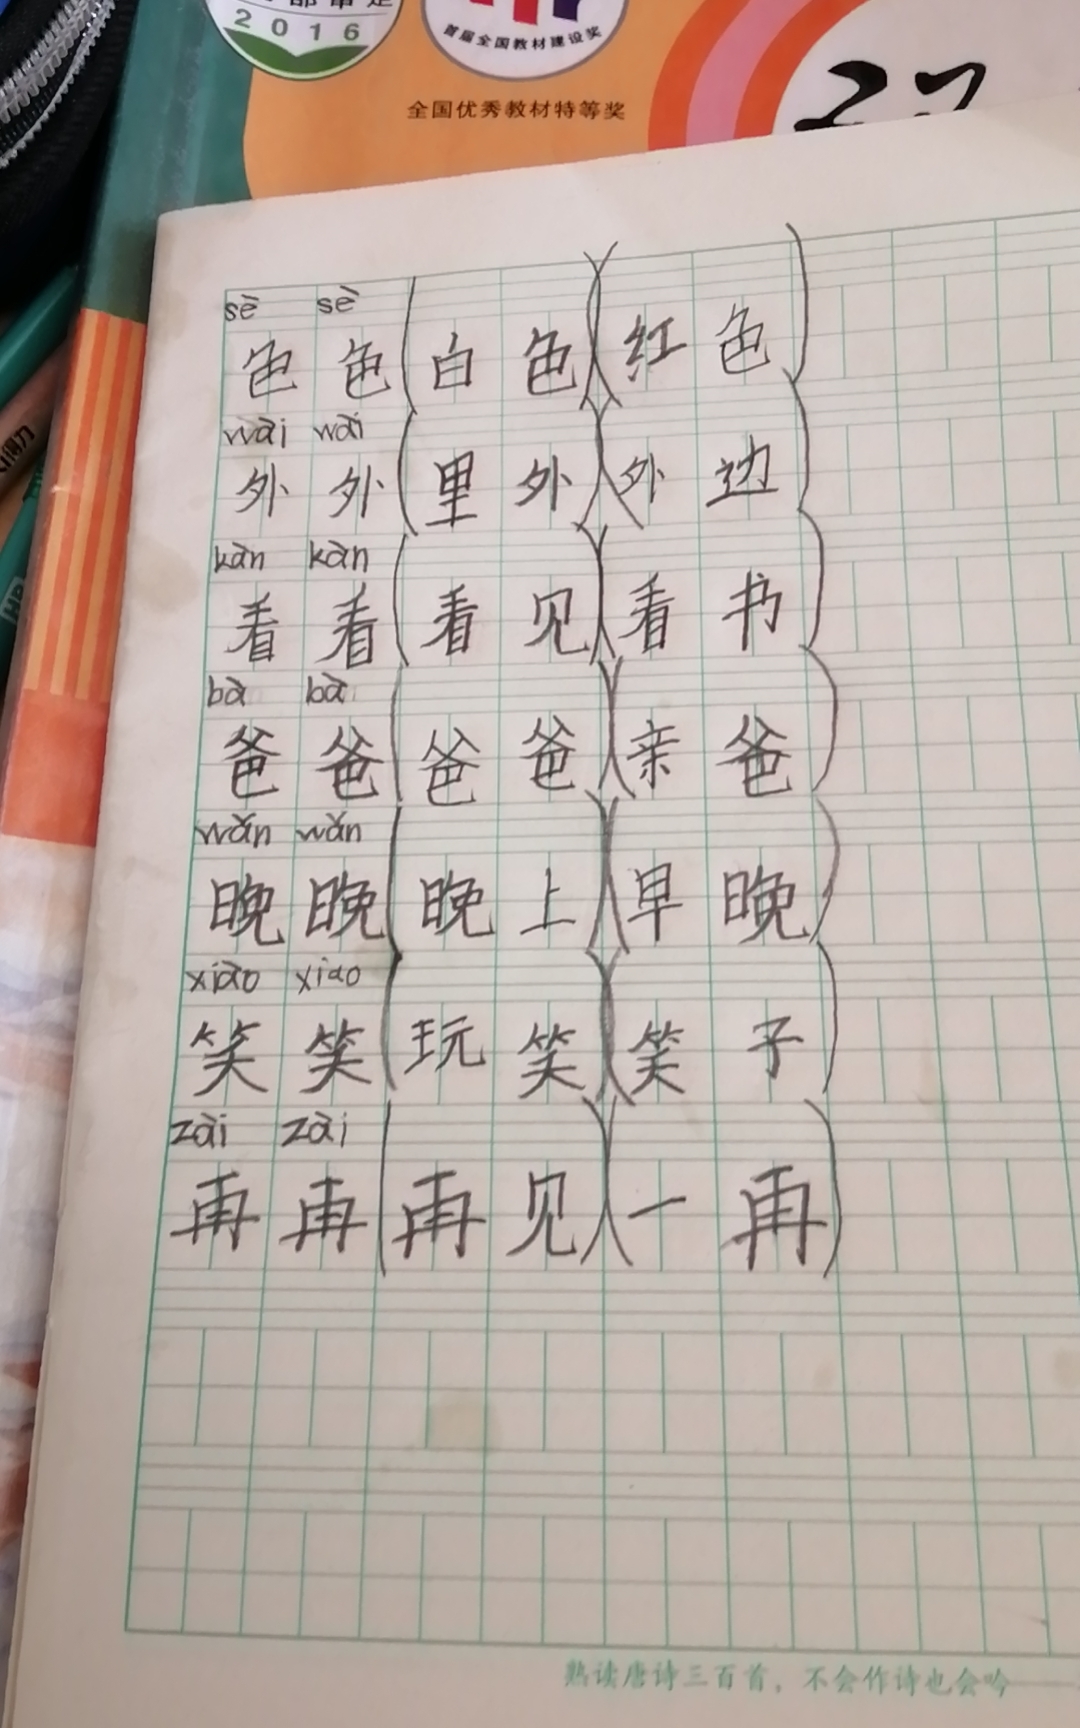 2016
首届全国教材建设奖
全国优秀教材特等奖
sè sè
色 色 (白 色)(红 色)
wài wài
外 外 (里 外)(外 边)
kàn kàn
看 看 (看 见)(看 书)
bà bà
爸 爸 (爸 爸)(亲 爸)
wǎn wǎn
晚 晚 (晚 上)(早 晚)
xiào xiao
笑 笑 (玩 笑)(笑 子)
zài zài
再 再 (再 见)(一 再)
熟读唐诗三百首，不会作诗也会吟